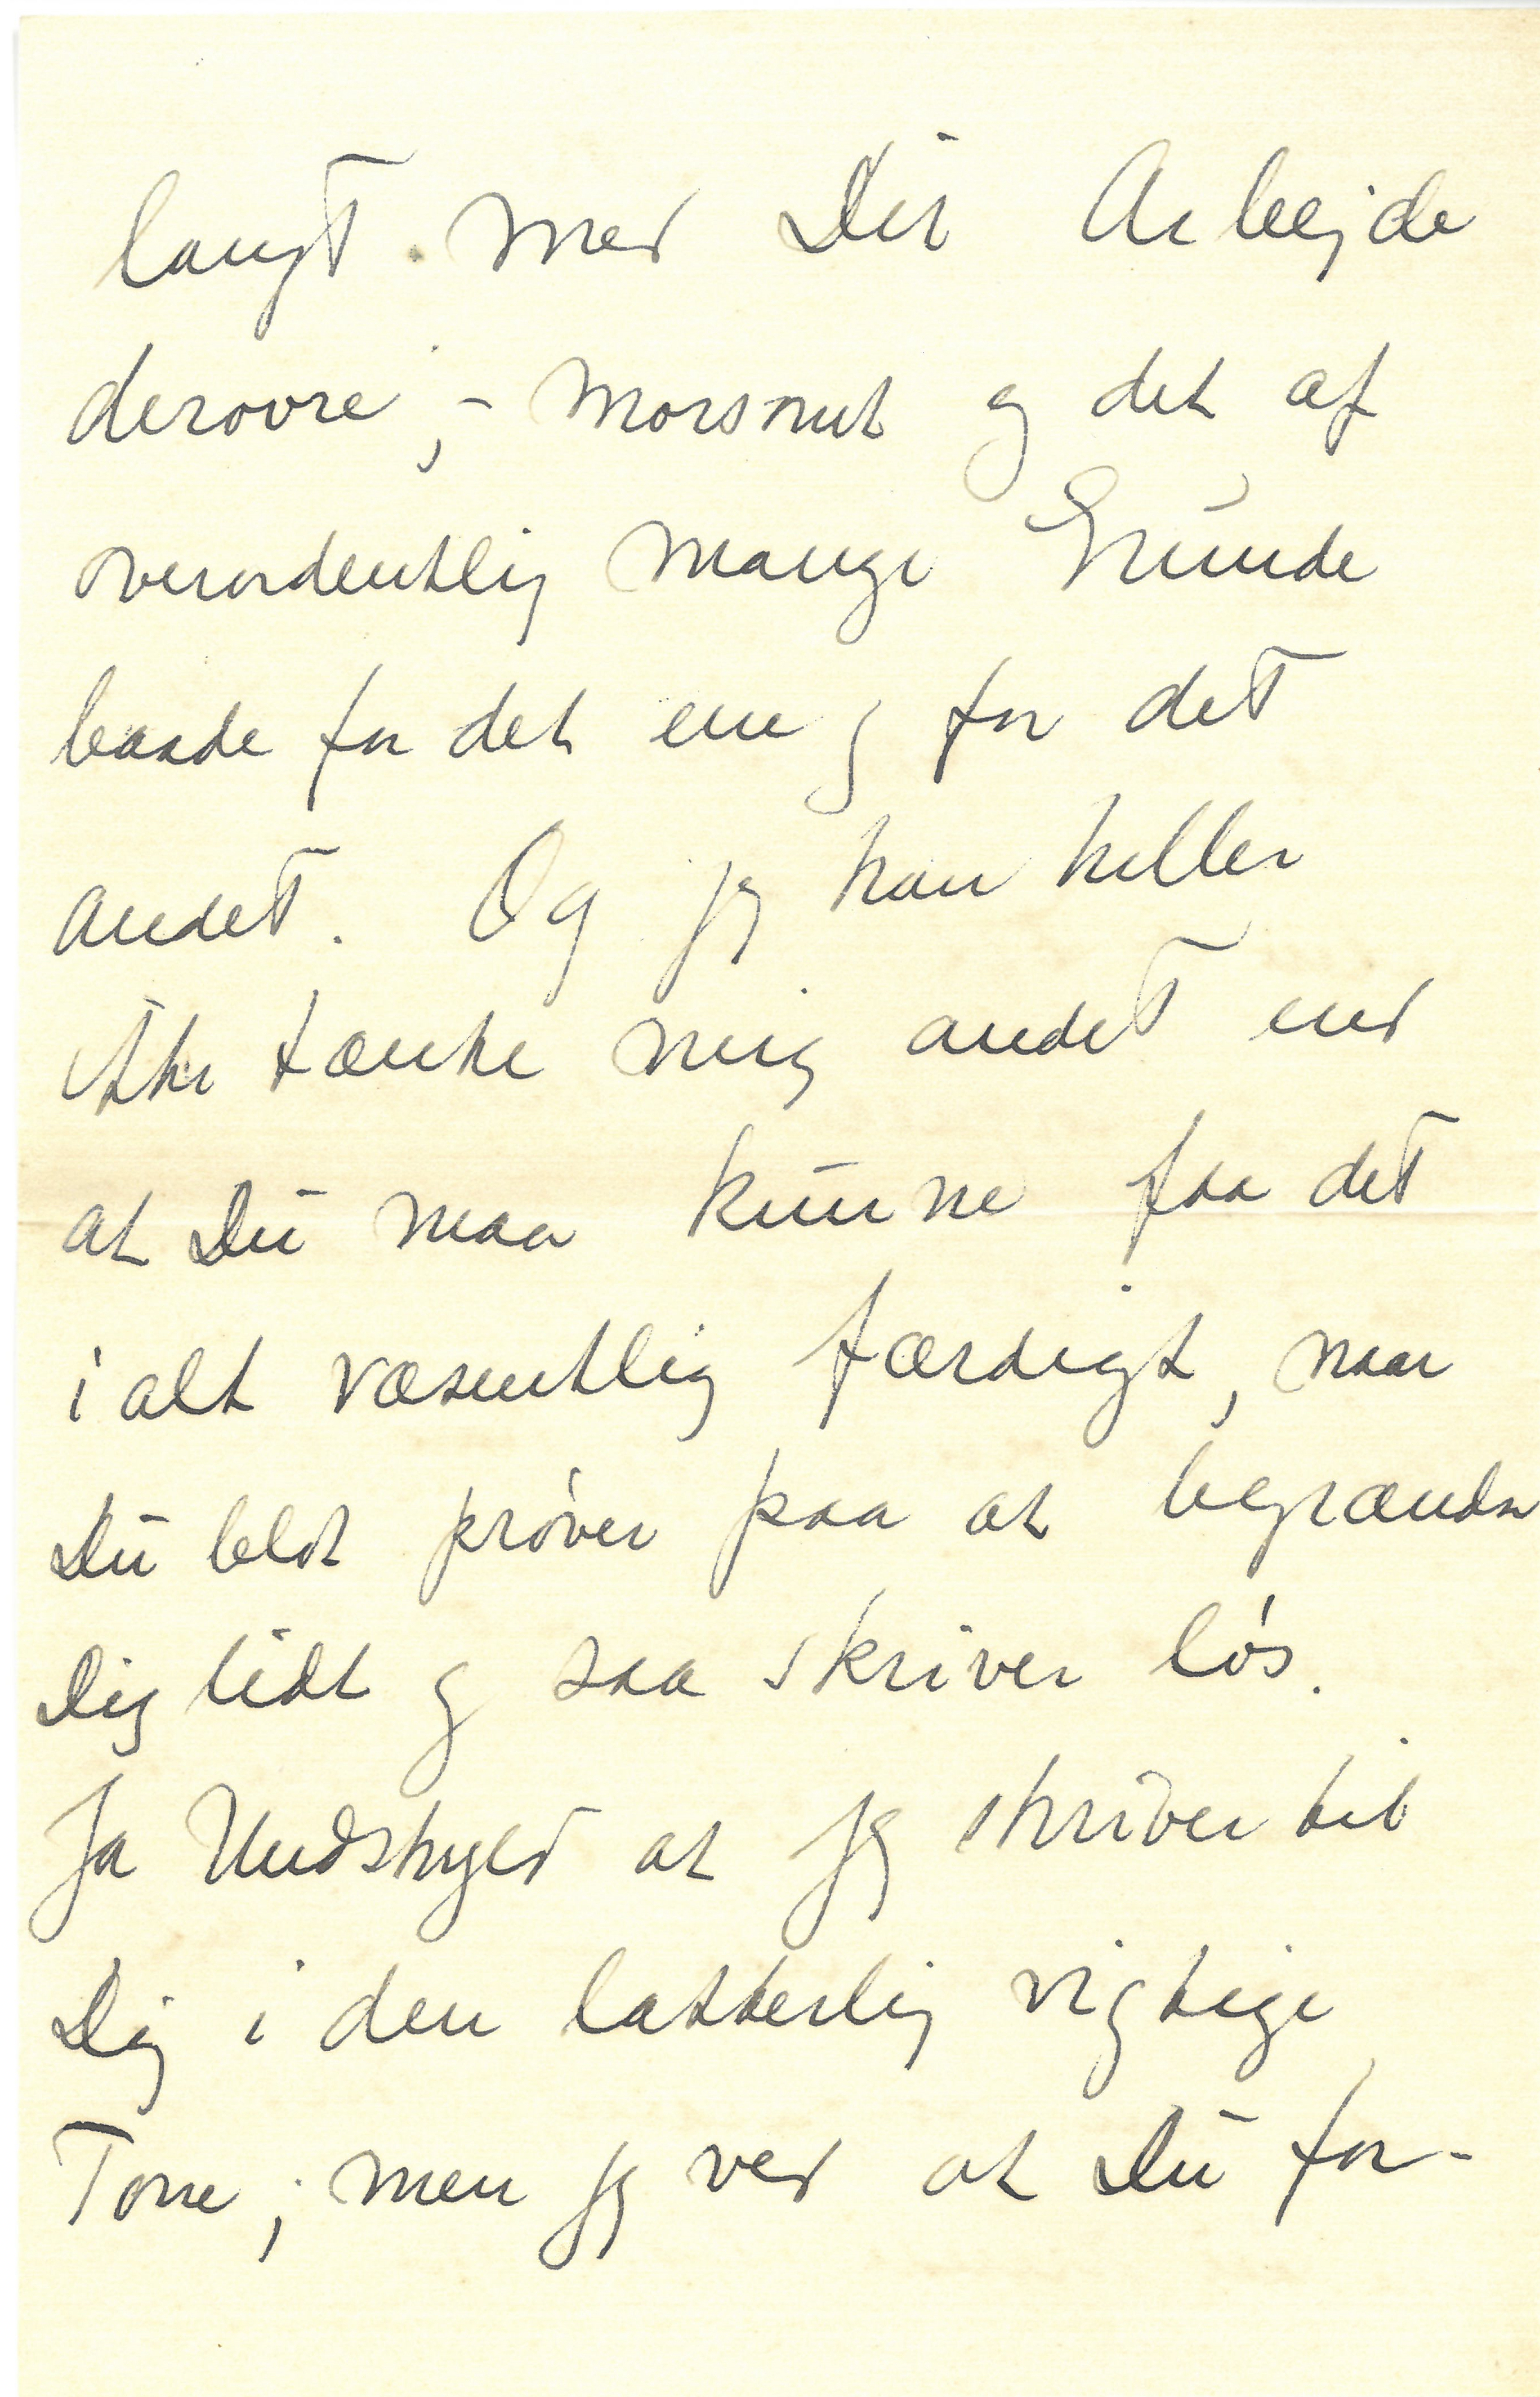 langt med Dit Arbejde
derovre; - morsomt og det af
overordentlig mange Grunde
baade for det ene og for det
andet. Og jeg kan heller
ikke tænke mig andet end
at Du maa kunne faa det
i alt væsentlig færdigt, naar
Du blot prøver paa at begrændse
Dig lidt og saa skriver løs.
Ja Undskyld at jeg skriver til
Dig i den latterlig vigtige
Tone; men jeg ved at Du for-